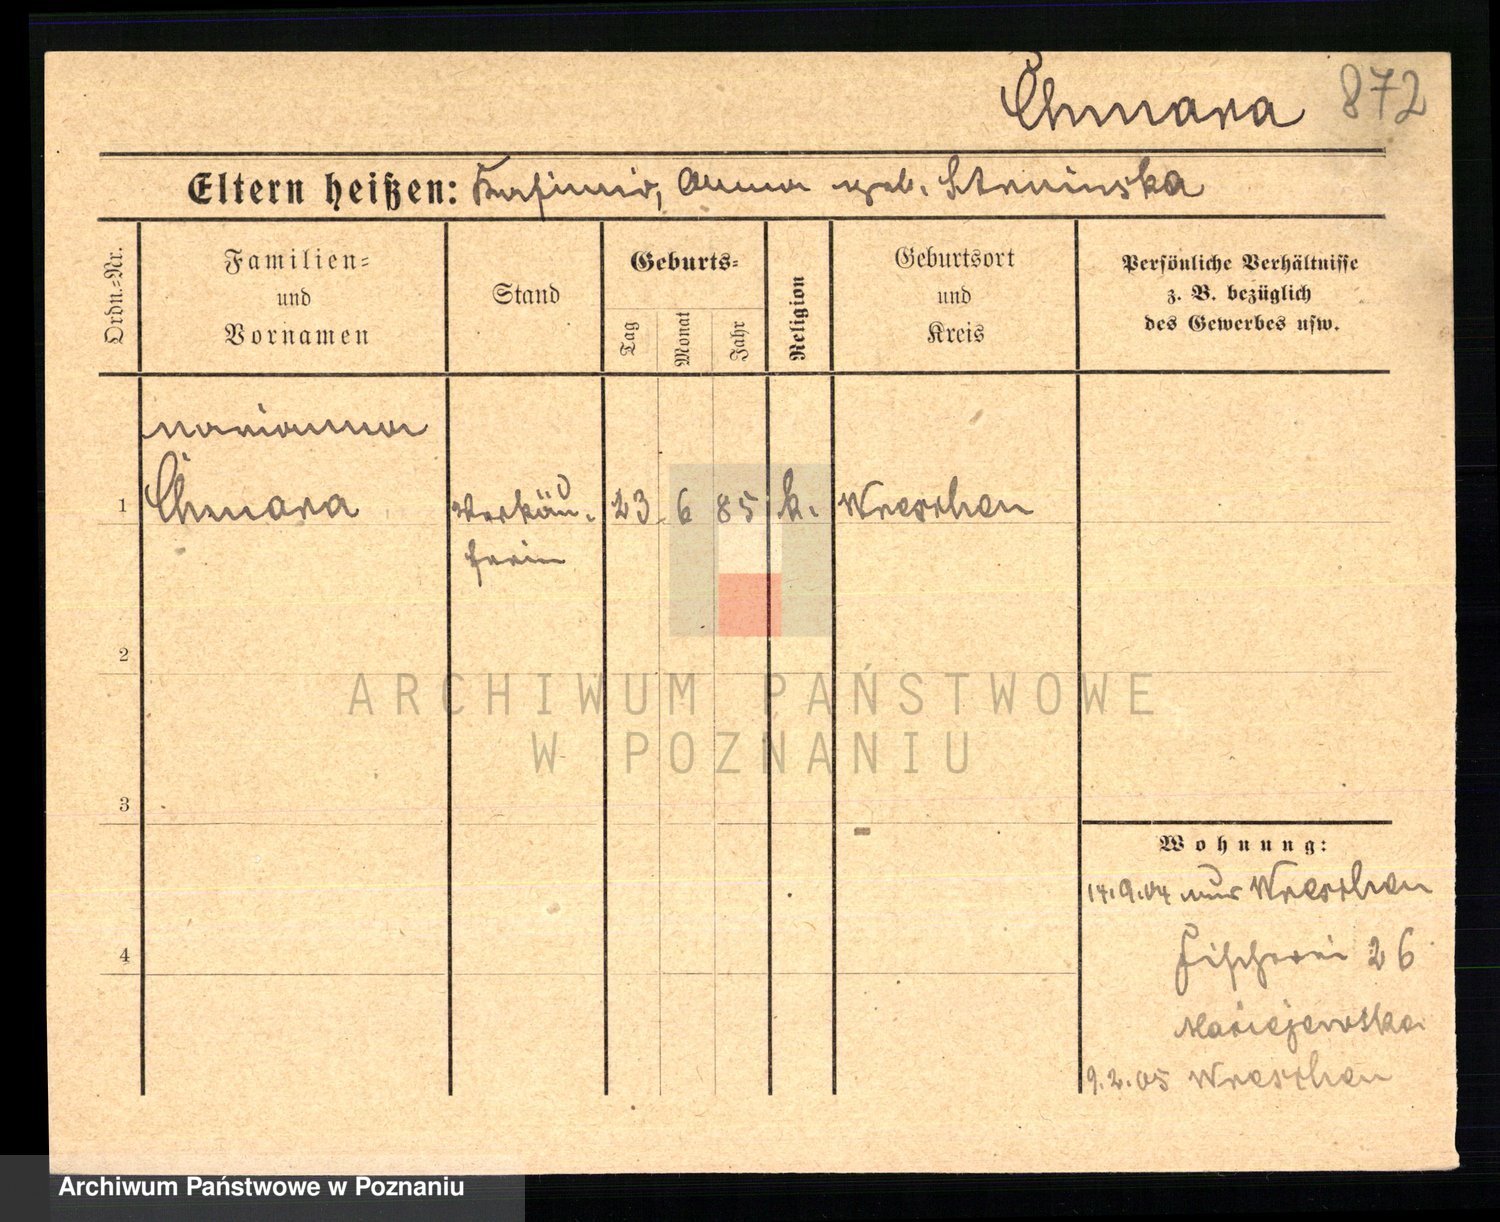 Chmara 872
Eltern heißen: Kasimir, Anna geb.
Ordn.-Nr.
Familien-
und
Vornamen
Stand
Geburts-
Tag
Monat
Jahr
Religion
Geburtsort
und
Kreis
Persönliche Verhältnisse
z. B. bezüglich
des Gewerbes usw.
Marianna
1 Chmara Verkäu- 23 6 85 k. Wreschen
ferin
2
3
4
Wohnung:
14.9.04 aus Wreschen
Fischerei 26
Maciejewska
9.2.05 Wreschen
ARCHIWUM PAŃSTWOWE
W POZNANIU
Archiwum Państwowe w Poznaniu